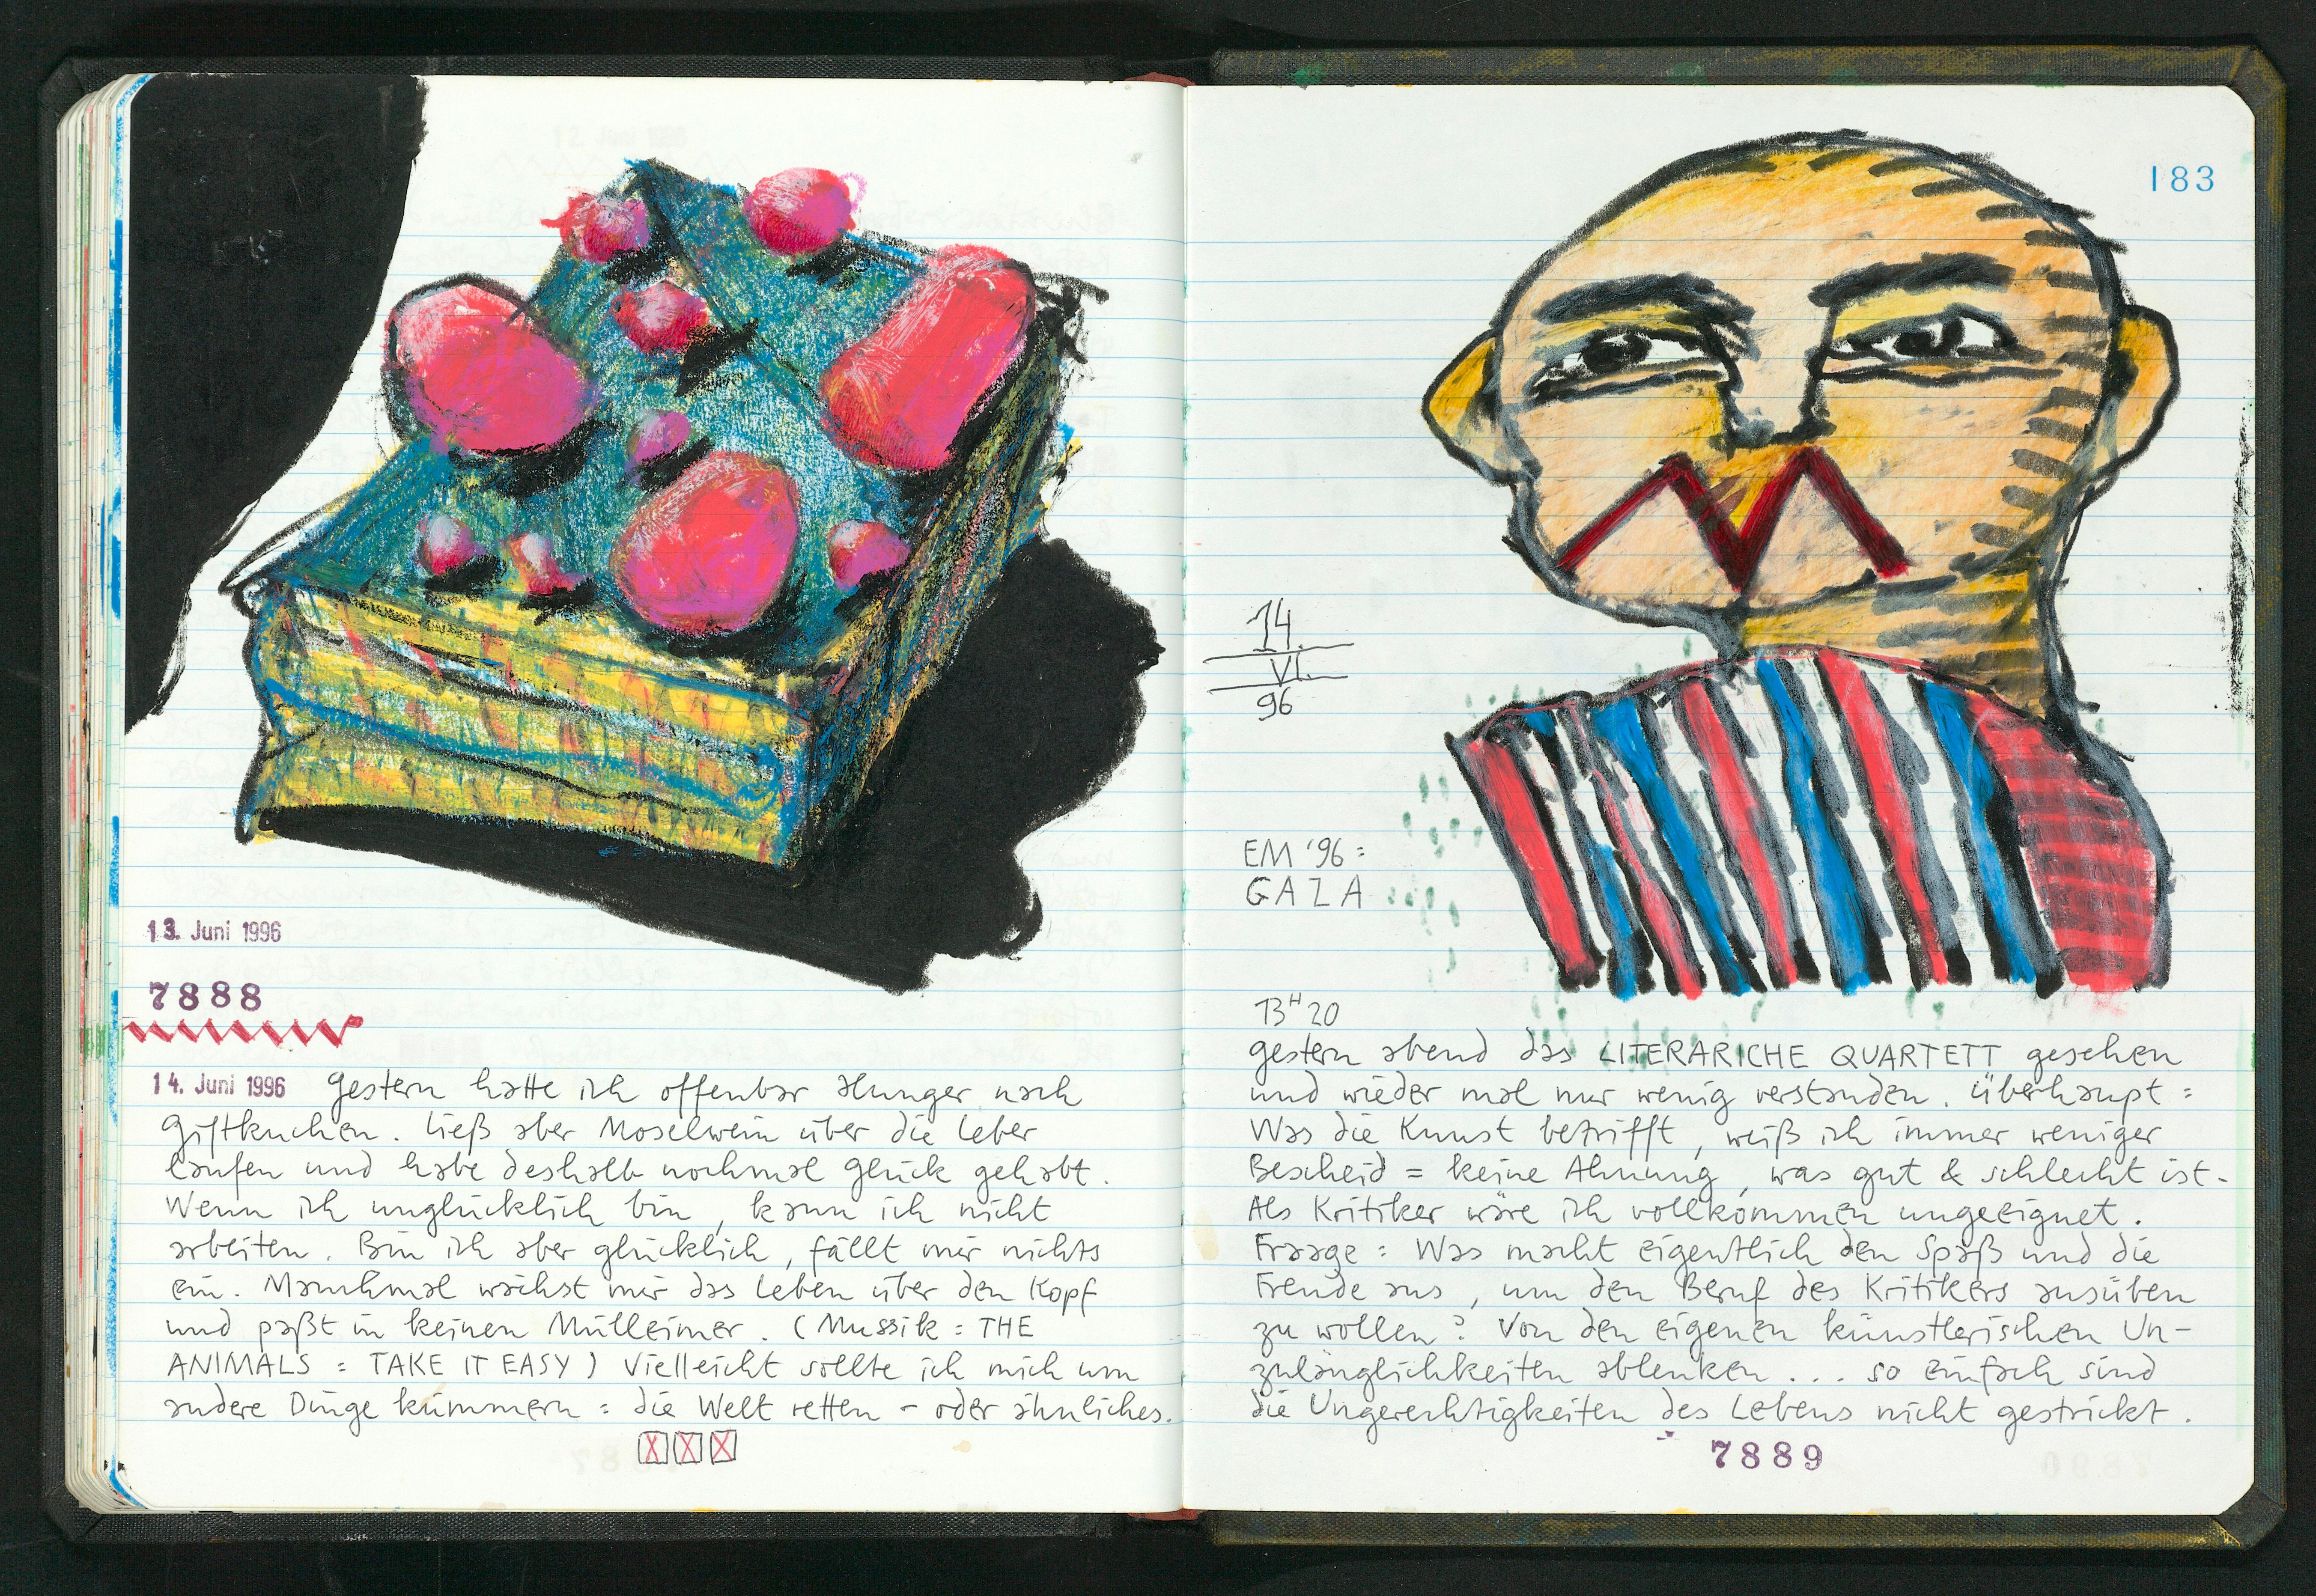 13. Juni 1996
7888
14. Juni 1996 Gestern hatte ich offenbar Hunger nach
Giftkuchen. Ließ aber Moselwein über die Leber
laufen und habe deshalb nochmal Glück gehabt.
Wenn ich unglücklich bin, kann ich nicht
arbeiten. Bin ich aber glücklich, fällt mir nichts
ein. Manchmal wächst mir das Leben über den Kopf
und paßt in keinen Mülleimer. (Mussik: THE
ANIMALS: TAKE IT EASY) Vielleicht sollte ich mich um
andere Dinge kümmern: die Welt retten - oder ähnliches.
183
14.
VI.
96
EM '96:
GAZA
13H20
gestern abend das LITERARICHE QUARTETT gesehen
und wieder mal nur wenig verstanden. Überhaupt:
Was die Kunst betrifft, weiß ich immer weniger
Bescheid = keine Ahnung, was gut & schlecht ist.
Als Kritiker wäre ich vollkommen ungeeignet.
Fraage: Was macht eigentlich den Spaß und die
Freude aus, um den Beruf des Kritikers ausüben
zu wollen? Von den eigenen künstlerischen Un-
zulänglichkeiten ablenken... so einfach sind
die Ungerechtigkeiten des Lebens nicht gestrickt.
7889